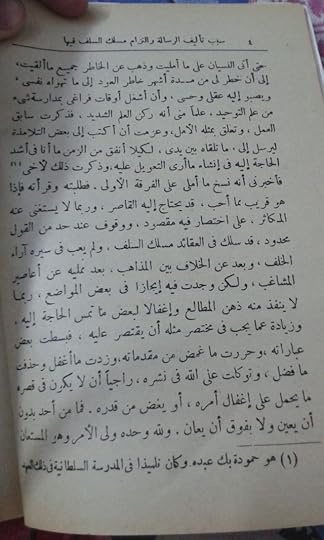 ٤ سبب تأليف الرسالة والتزام مسلك السلف فيها
حتى أتى النسيان على ما أمليت وذهب عن الخاطر جميع ما ألقيت،
إلى أن خطر لى من مسدة أشهر خاطر العود إلى ما تهواه نفسى،
ويصبو إليه عقلى وحسى، وأن أشغل أوقات فراغى بمدارسة شىء
من علم التوحيد، علما منى أنه ركن العلم الشديد، فذكرت سابق
العمل، وتعلق بمثله الأمل، وعزمت أن أكتب إلى بعض التلامذة
ليرسل إلى، ما تلقاه بين يدى، لكيلا أنفق من الزمن ما أنا فى أشد
الحاجة إليه فى إنشاء ما أرى التعويل عليه، وذكرت ذلك لأخى (١)
فأخبرنى أنه نسخ ما أملى على الفرقة الأولى. فطلبته وقرأته فإذا
هو قريب مما أحب، قد يحتاج إليه القاصر، وربما لا يستغنى عنه
المكاثر، على اختصار فيه مقصود، ووقوف عند حد من القول
محدود، قد سلك فى العقائد مسلك السلف، ولم يعب فى سيره آراء
الخلف، وبعد عن الخلاف بين المذاهب، بعد ممليه عن أعاصير
المشاغب، ولكن وجدت فيه إيجازا فى بعض المواضع، ربما
لا ينفذ منه ذهن المطالع وإغفالا لبعض ما تمس الحاجة إليه،
وزيادة عما يجب فى مختصر مثله أن يقتصر عليه، فبسطت بعض
عباراته، وحررت ما غمض من مقدماته، وزدت ما أغفل وحذفت
ما فضل، وتوكلت على الله فى نشره، راجياً أن لا يكون فى قصره
ما يحمل على إغفال أمره، أو يغض من قدره. فما من أحد بدون
أن يعين ولا بفوق أن يعان. ولله وحده ولى الأمر وهو المستعان
(١) هو حمودة بك عبده. وكان تلميذا فى المدرسة السلطانية فى ذلك العهد